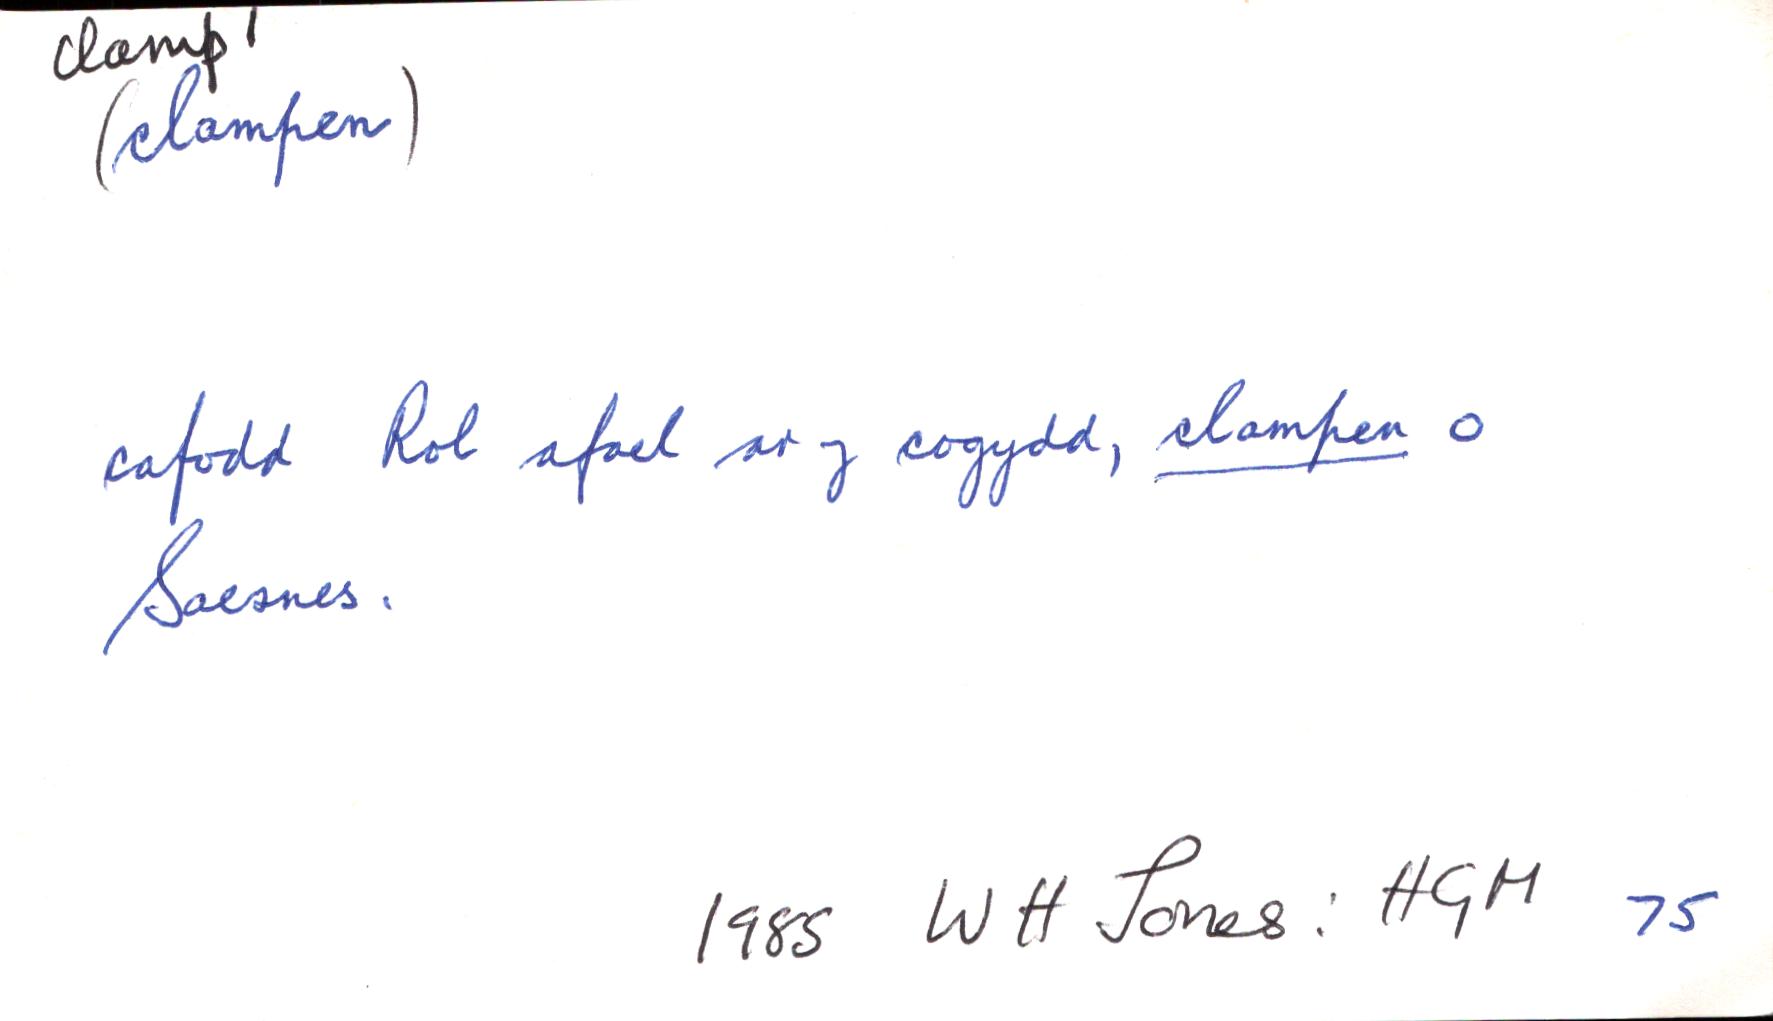 clamp¹
(clampen)
cafodd Rol afael ar y cogydd, clampen o
Saesnes.
1985 W H Jones: HGM 75